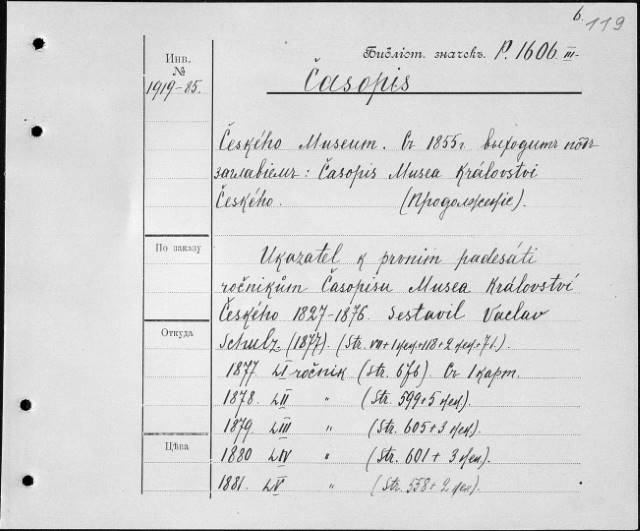 6.
119
Библіот. значекъ P. 1606 III-
Инв.
№
1919-85.
Časopis
Českého Museum. Съ 1855 г. выходитъ подъ
заглавіемъ: Časopis Musea Království
Českého. (Продолженіе).
По заказу
Ukazatel k prvním padesáti
ročníkům Časopisu Musea Království
Českého 1827-1876. Sestavil Vaclav
Откуда
Schulz (1877). (Str. VII+1 +118+2 +
1877 LI ročnik (Str. 676). Съ 1 карт.
1878. LII " (Str. 599+5 нен).
1879. LIII " (Str. 605+3 нен).
Цѣна
1880 LIV " (Str. 601 + 3 нен).
1881. LV " (Str. 558+2 нен).